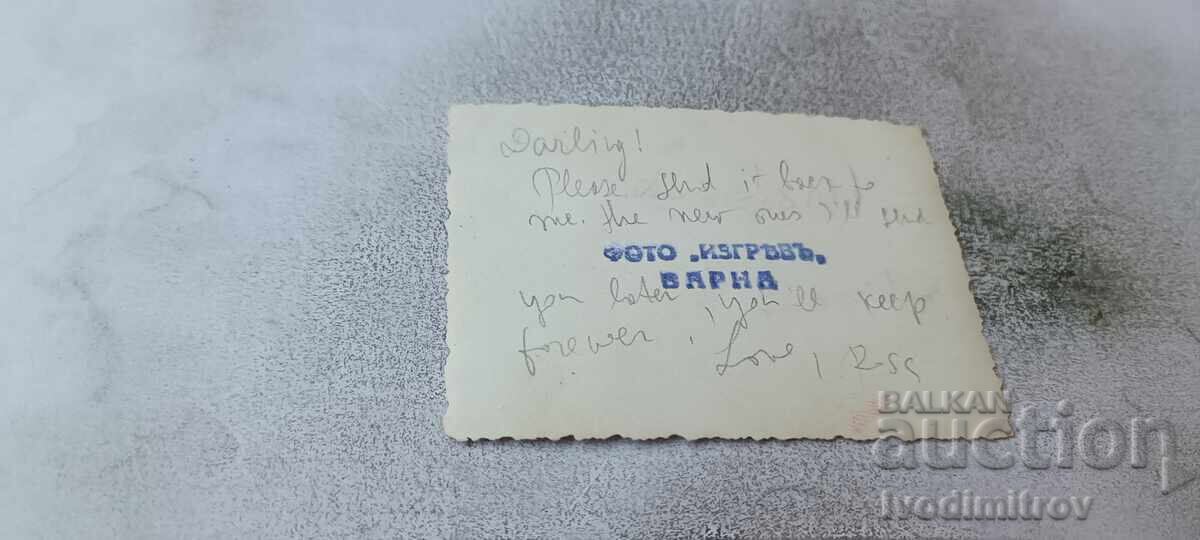 Darling!
Please send it back to
me. The new ones I'll send
ФОТО „ИЗГРѢВЪ„
ВАРНА
you later, you'll keep
forever. Love,
BALKAN
auction
ivodimitrov